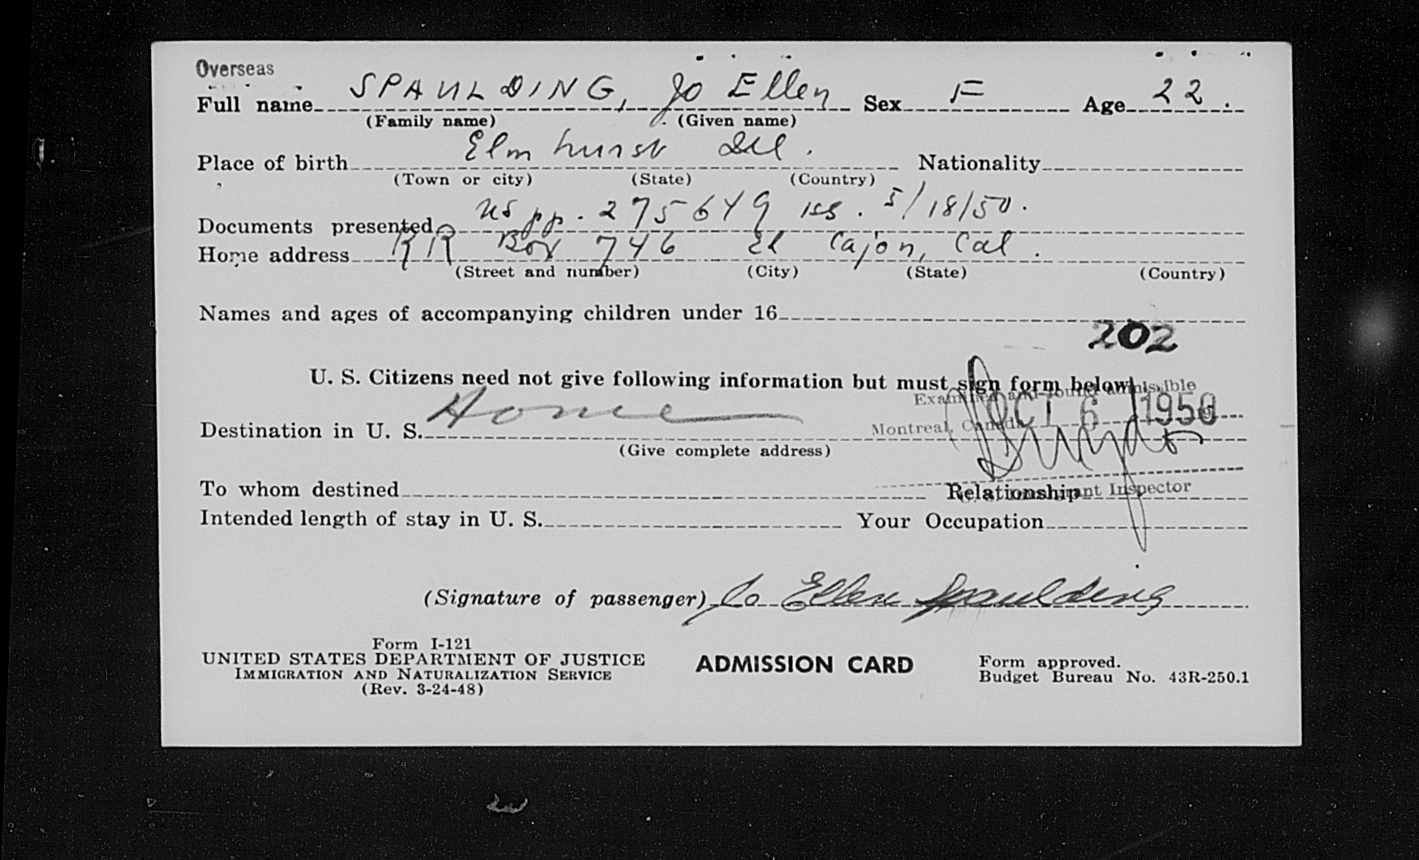 Overseas
Full name SPAULDING, Jo Ellen Sex F Age 22.
(Family name) (Given name)
Place of birth Elmhurst Ill. Nationality
(Town or city) (State) (Country)
Documents presented US pp. 275649 iss. 5/18/50.
Home address RR Box 746 El Cajon, Cal.
(Street and number) (City) (State) (Country)
Names and ages of accompanying children under 16
202
U. S. Citizens need not give following information but must sign form below
Examined and found admissible
OCT 6 1950
Destination in U. S. Home
Montreal, Canada
(Give complete address)
To whom destined Relationship
Immigrant Inspector
Intended length of stay in U. S. Your Occupation
(Signature of passenger) Jo Ellen Spaulding
Form I-121
UNITED STATES DEPARTMENT OF JUSTICE ADMISSION CARD Form approved.
IMMIGRATION AND NATURALIZATION SERVICE Budget Bureau No. 43R-250.1
(Rev. 3-24-48)